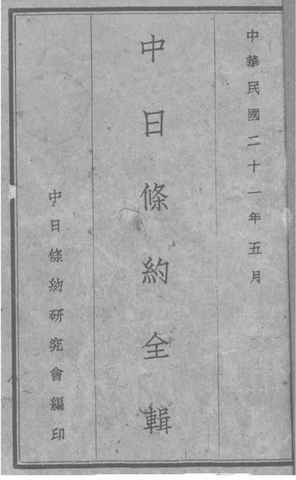 中華民國二十一年五月
中日條約全輯
中日條約研究會編印